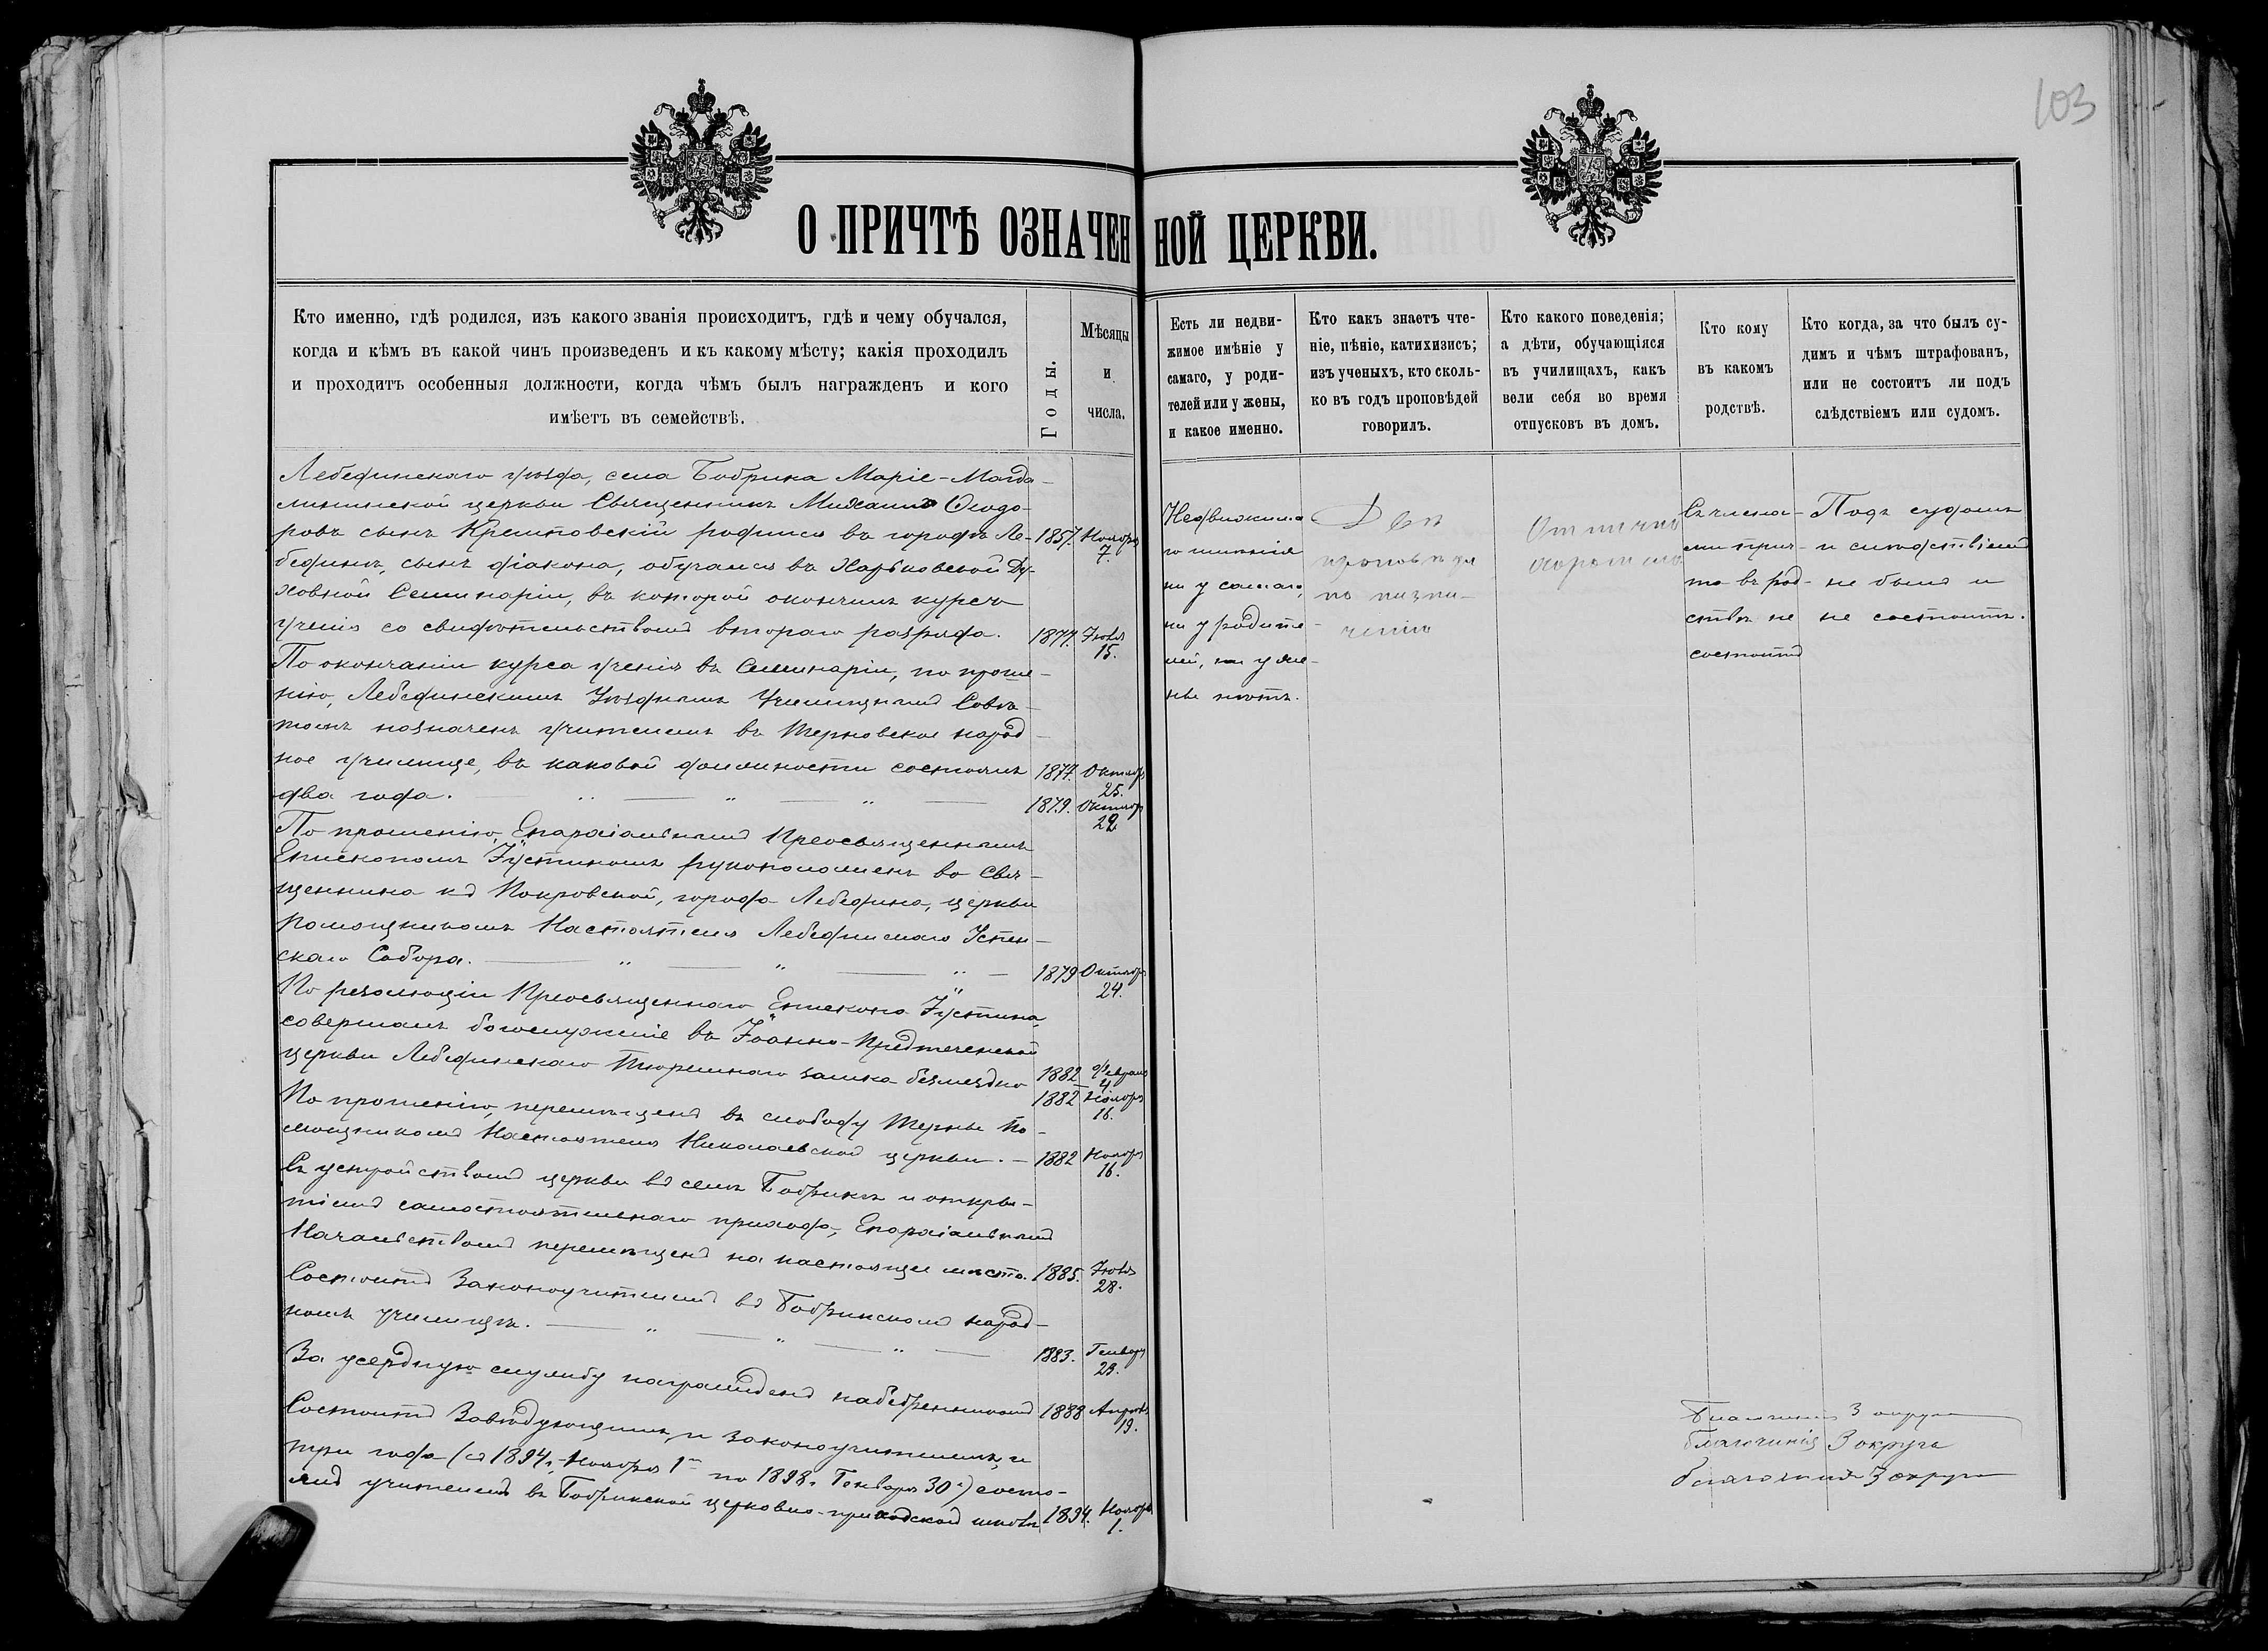 103
О ПРИЧТѢ ОЗНАЧЕННОЙ ЦЕРКВИ.
Кто именно, гдѣ родился, изъ какого званія происходитъ, гдѣ и чему обучался,
когда и кѣмъ въ какой чинъ произведенъ и къ какому мѣсту; какія проходилъ
и проходитъ особенныя должности, когда чѣмъ былъ награжденъ и кого
имѣетъ въ семействѣ.
Годы.
Мѣсяцы
и
числа.
Есть ли недви-
жимое имѣніе у
самаго, у роди-
телей или у жены,
и какое именно.
Кто какъ знаетъ чте-
ніе, пѣніе, катихизисъ;
изъ ученыхъ, кто сколь-
ко въ годъ проповѣдей
говорилъ.
Кто какого поведенія;
а дѣти, обучающіяся
въ училищахъ, какъ
вели себя во время
отпусковъ въ домъ.
Кто кому
въ какомъ
родствѣ.
Кто когда, за что былъ су-
димъ и чѣмъ штрафованъ,
или не состоитъ ли подъ
слѣдствіемъ или судомъ.
Лебединскаго уѣзда, села Бобрика Маріе-Магда-
лининской церкви Священникъ Михаилъ Ѳеодо-
ровъ сынъ Крыштовскій родился въ городѣ Ле- 1857. Ноября 7.
бединѣ, сынъ діакона, обучался въ Харьковской Ду-
ховной Семинаріи, въ которой окончилъ курсъ
ученія со свидѣтельствомъ втораго разряда. 1877. Іюля 15.
По окончаніи курса ученія въ Семинаріи, по проше-
нію, Лебединскимъ Уѣзднымъ Училищнымъ Совѣ-
томъ назначенъ учителемъ въ Терновское народ-
ное училище, въ каковой должности состоялъ 1877. Октября 25.
два года. 1879. Октября 22
По прошенію, Епархіальнымъ Преосвященнымъ
Епископомъ Іустиномъ рукоположенъ во Свя-
щенника къ Покровской, города Лебедина, церкви
помощникомъ Настоятеля Лебединскаго Успен-
скаго Собора. 1879 Октября 24.
По резолюціи Преосвященнаго Епископа Іустина,
совершалъ богослуженіе въ Іоанно-Предтеченской
церкви Лебединскаго Тюремнаго замка безмездно 1882 Февраля 4.
1882 Ноября 16.
По прошенію, перемѣщенъ въ слободу Терны по-
мощникомъ Настоятеля Николаевской церкви. 1882 Ноября 16.
Съ устройствомъ церкви въ селѣ Бобрикѣ и откры-
тіемъ самостоятельнаго прихода, Епархіальнымъ
Начальствомъ перемѣщенъ на настоящее мѣсто. 1885. Іюля 28.
Состоитъ Законоучителемъ въ Бобрикскомъ народ-
номъ училищѣ. 1883. Генваря 23.
За усердную службу награжденъ набедренникомъ 1888 Апрѣля 19.
Состоитъ Завѣдующимъ и законоучителемъ, и
три года (съ 1894 г. Ноября 1 по 1898 г. Генваря 30) состо-
ялъ учителемъ въ Бобрикской церковно-приходской школѣ 1894. Ноября 1.
Недвижима-
го имѣнія
ни у самаго,
ни у родите-
лей, ни у же-
ны нѣтъ.
Двѣ
проповѣди
по назна-
ченію
Отлично
хорошаго
Съ члена-
ми прич-
та въ род-
ствѣ не
состоитъ
Подъ судомъ
и слѣдствіемъ
не былъ и
не состоитъ.
благочинія 3 округа
благочинія 3 округа
благочинія 3 округа